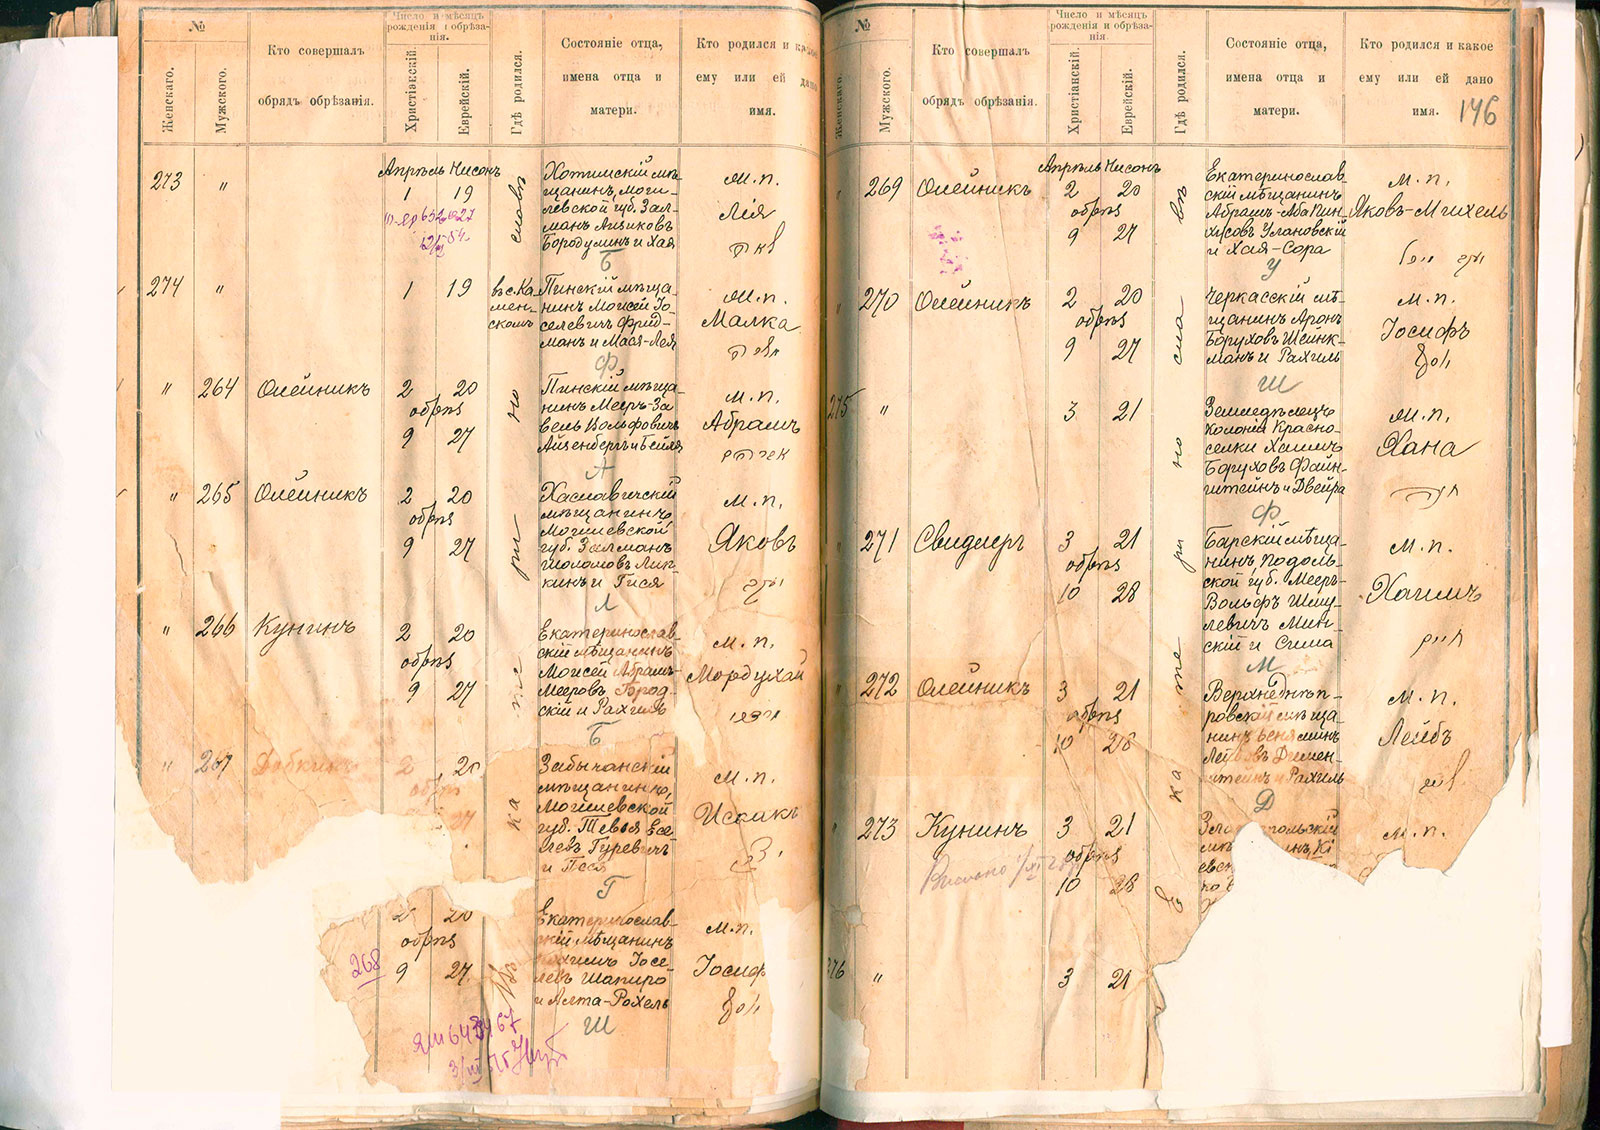 №
Женскаго.
Мужского.
Кто совершалъ
обрядъ обрѣзанія.
Число и мѣсяцъ
рожденія и обрѣза-
нія.
Христіанскій.
Еврейскій.
Гдѣ родился.
Состояніе отца,
имена отца и
матери.
Кто родился и какое
ему или ей дано
имя.
въ г. Екатеринославѣ
273 " Апрѣль Нисонъ
1 19
Хотимскій мѣ-
щанинъ, Моги-
левской губ. Зал-
манъ Айзиковъ
Бородулинъ и Хая
Б
м.п.
Лія
לאה
274 " 1 19
въ с. Ка-
мен-
скомъ
Пинскій мѣща-
нинъ Моисей Іо-
селевичъ Фрид-
манъ и Мася-Лея
Ф
м.п.
Малка
מלכה
" 264 Олейникъ
2 20
обрѣз
9 27
Пинскій мѣща-
нинъ Мееръ-За-
вель Вольфовичъ
Айзенбергъ и Бейля
А
м.п.
Абрамъ
אברהם
" 265 Олейникъ
2 20
обрѣз
9 27
Хаславичскій
мѣщанинъ
Могилевской
губ. Залманъ
Шоломовъ Лип-
кинъ и Гися
Л
м.п.
Яковъ
יעקב
" 266 Кунинъ
2 20
обрѣз
9 27
Екатеринослав-
скій мѣщанинъ
Моисей Абрамъ-
Мееровъ Город-
скій и Рахиль
Б
м.п.
Мордухай
מרדכי
" 267 Добкинъ
2 20
обрѣз
27
Забычанскій
мѣщанинъ,
Могилевской
губ. Тевья Есе-
левъ Гуревичъ
и Песя
Г
м.п.
Исаакъ
268
2 20
обрѣз
9 27
Екатеринослав-
скій мѣщанинъ
Іосе-
левъ Шапиро
и Алта-Рохель
Ш
м.п.
Іосиф
יוסף
№
Женскаго.
Мужского.
Кто совершалъ
обрядъ обрѣзанія.
Число и мѣсяцъ
рожденія и обрѣза-
нія.
Христіанскій.
Еврейскій.
Гдѣ родился.
Состояніе отца,
имена отца и
матери.
Кто родился и какое
ему или ей дано
имя.
146
въ г. Екатеринославѣ
" 269 Олейникъ
Апрѣль Нисонъ
2 20
обрѣз
9 27
Екатеринослав-
скій мѣщанинъ
Абрамъ-Аба Пин-
хусовъ Улановскій
и Хая-Сора
У
м.п.
Яковъ-Михель
" 270 Олейникъ
2 20
обрѣз
9 27
Черкасскій мѣ-
щанинъ Аронъ
Боруховъ Шейнк-
манъ и Рахиль
Ш
м.п.
Іосифъ
יוסף
275 " 3 21
Земледѣлецъ
колоніи Красно-
селки Хаимъ
Боруховъ Файн-
штейнъ и Двейра
Ф
м.п.
Хана
חנה
" 271 Свидлеръ
3 21
обрѣз
10 28
Барскій мѣща-
нинъ, Подоль-
ской губ. Мееръ-
Вольфъ Шму-
левичъ Мин-
скій и Сима
М
м.п.
Хаимъ
חיים
" 272 Олейникъ
3 21
обрѣз
10 28
Верхнеднѣп-
ровскій мѣща-
нинъ Беняминъ
Лейбовъ Димен-
штейнъ и Рахиль
Д
м.п.
Лейбъ
ליב
" 273 Кунинъ
3 21
обрѣз
10 28
м.п.
276 " 3 21